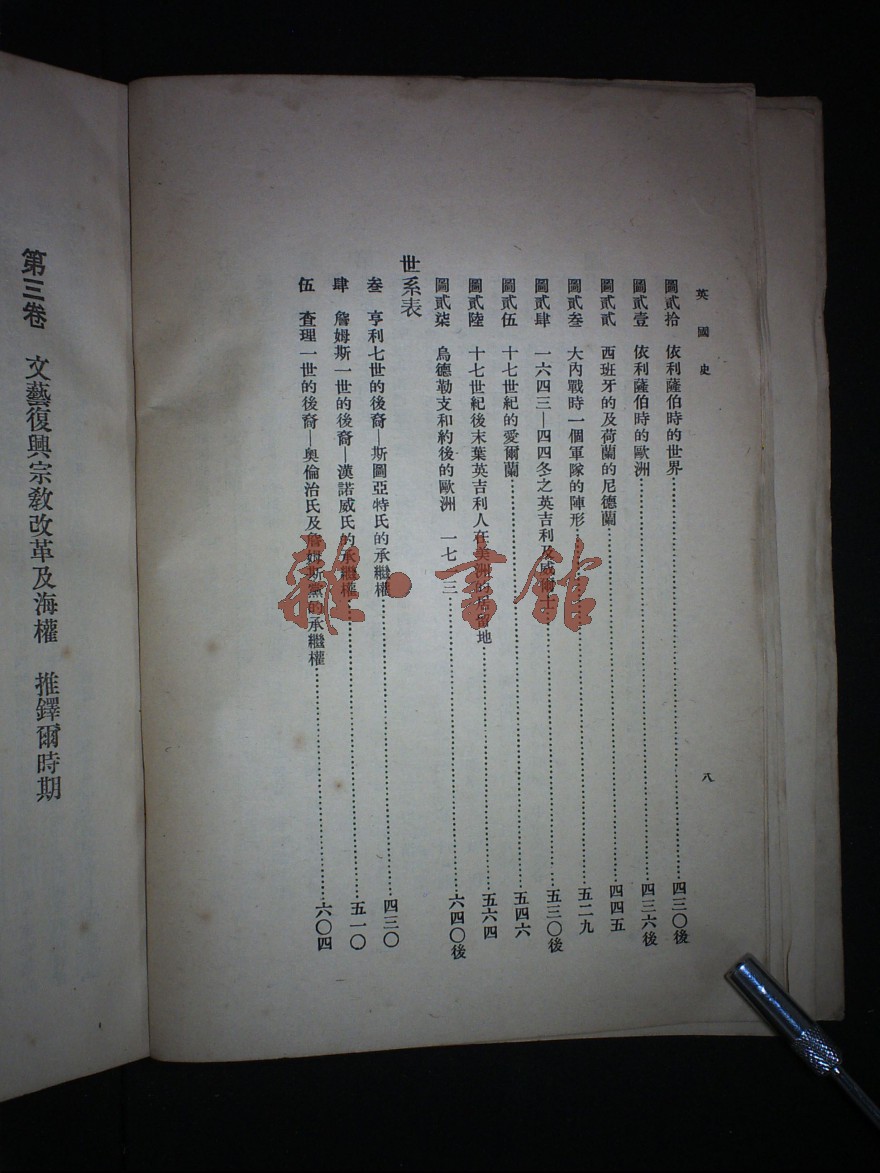 英國史
八
圖貳拾 依利薩伯時的世界……四三〇後
圖貳壹 依利薩伯時的歐洲……四三六後
圖貳貳 西班牙的及荷蘭的尼德蘭……四四五
圖貳叁 大內戰時一個軍隊的陣形……五二九
圖貳肆 一六四三—四四冬之英吉利及威爾士……五三〇後
圖貳伍 十七世紀的愛爾蘭……五四六
圖貳陸 十七世紀後末葉英吉利人在美洲的居留地……五六四
圖貳柒 烏德勒支和約後的歐洲 一七一三……六四〇後
世系表
叁 亨利七世的後裔—斯圖亞特氏的承繼權……四三〇
肆 詹姆斯一世的後裔—漢諾威氏的承繼權……五一〇
伍 查理一世的後裔—奧倫治氏及詹姆斯黨的承繼權……六〇四
第三卷 文藝復興宗教改革及海權 推鐸爾時期
雜·書館